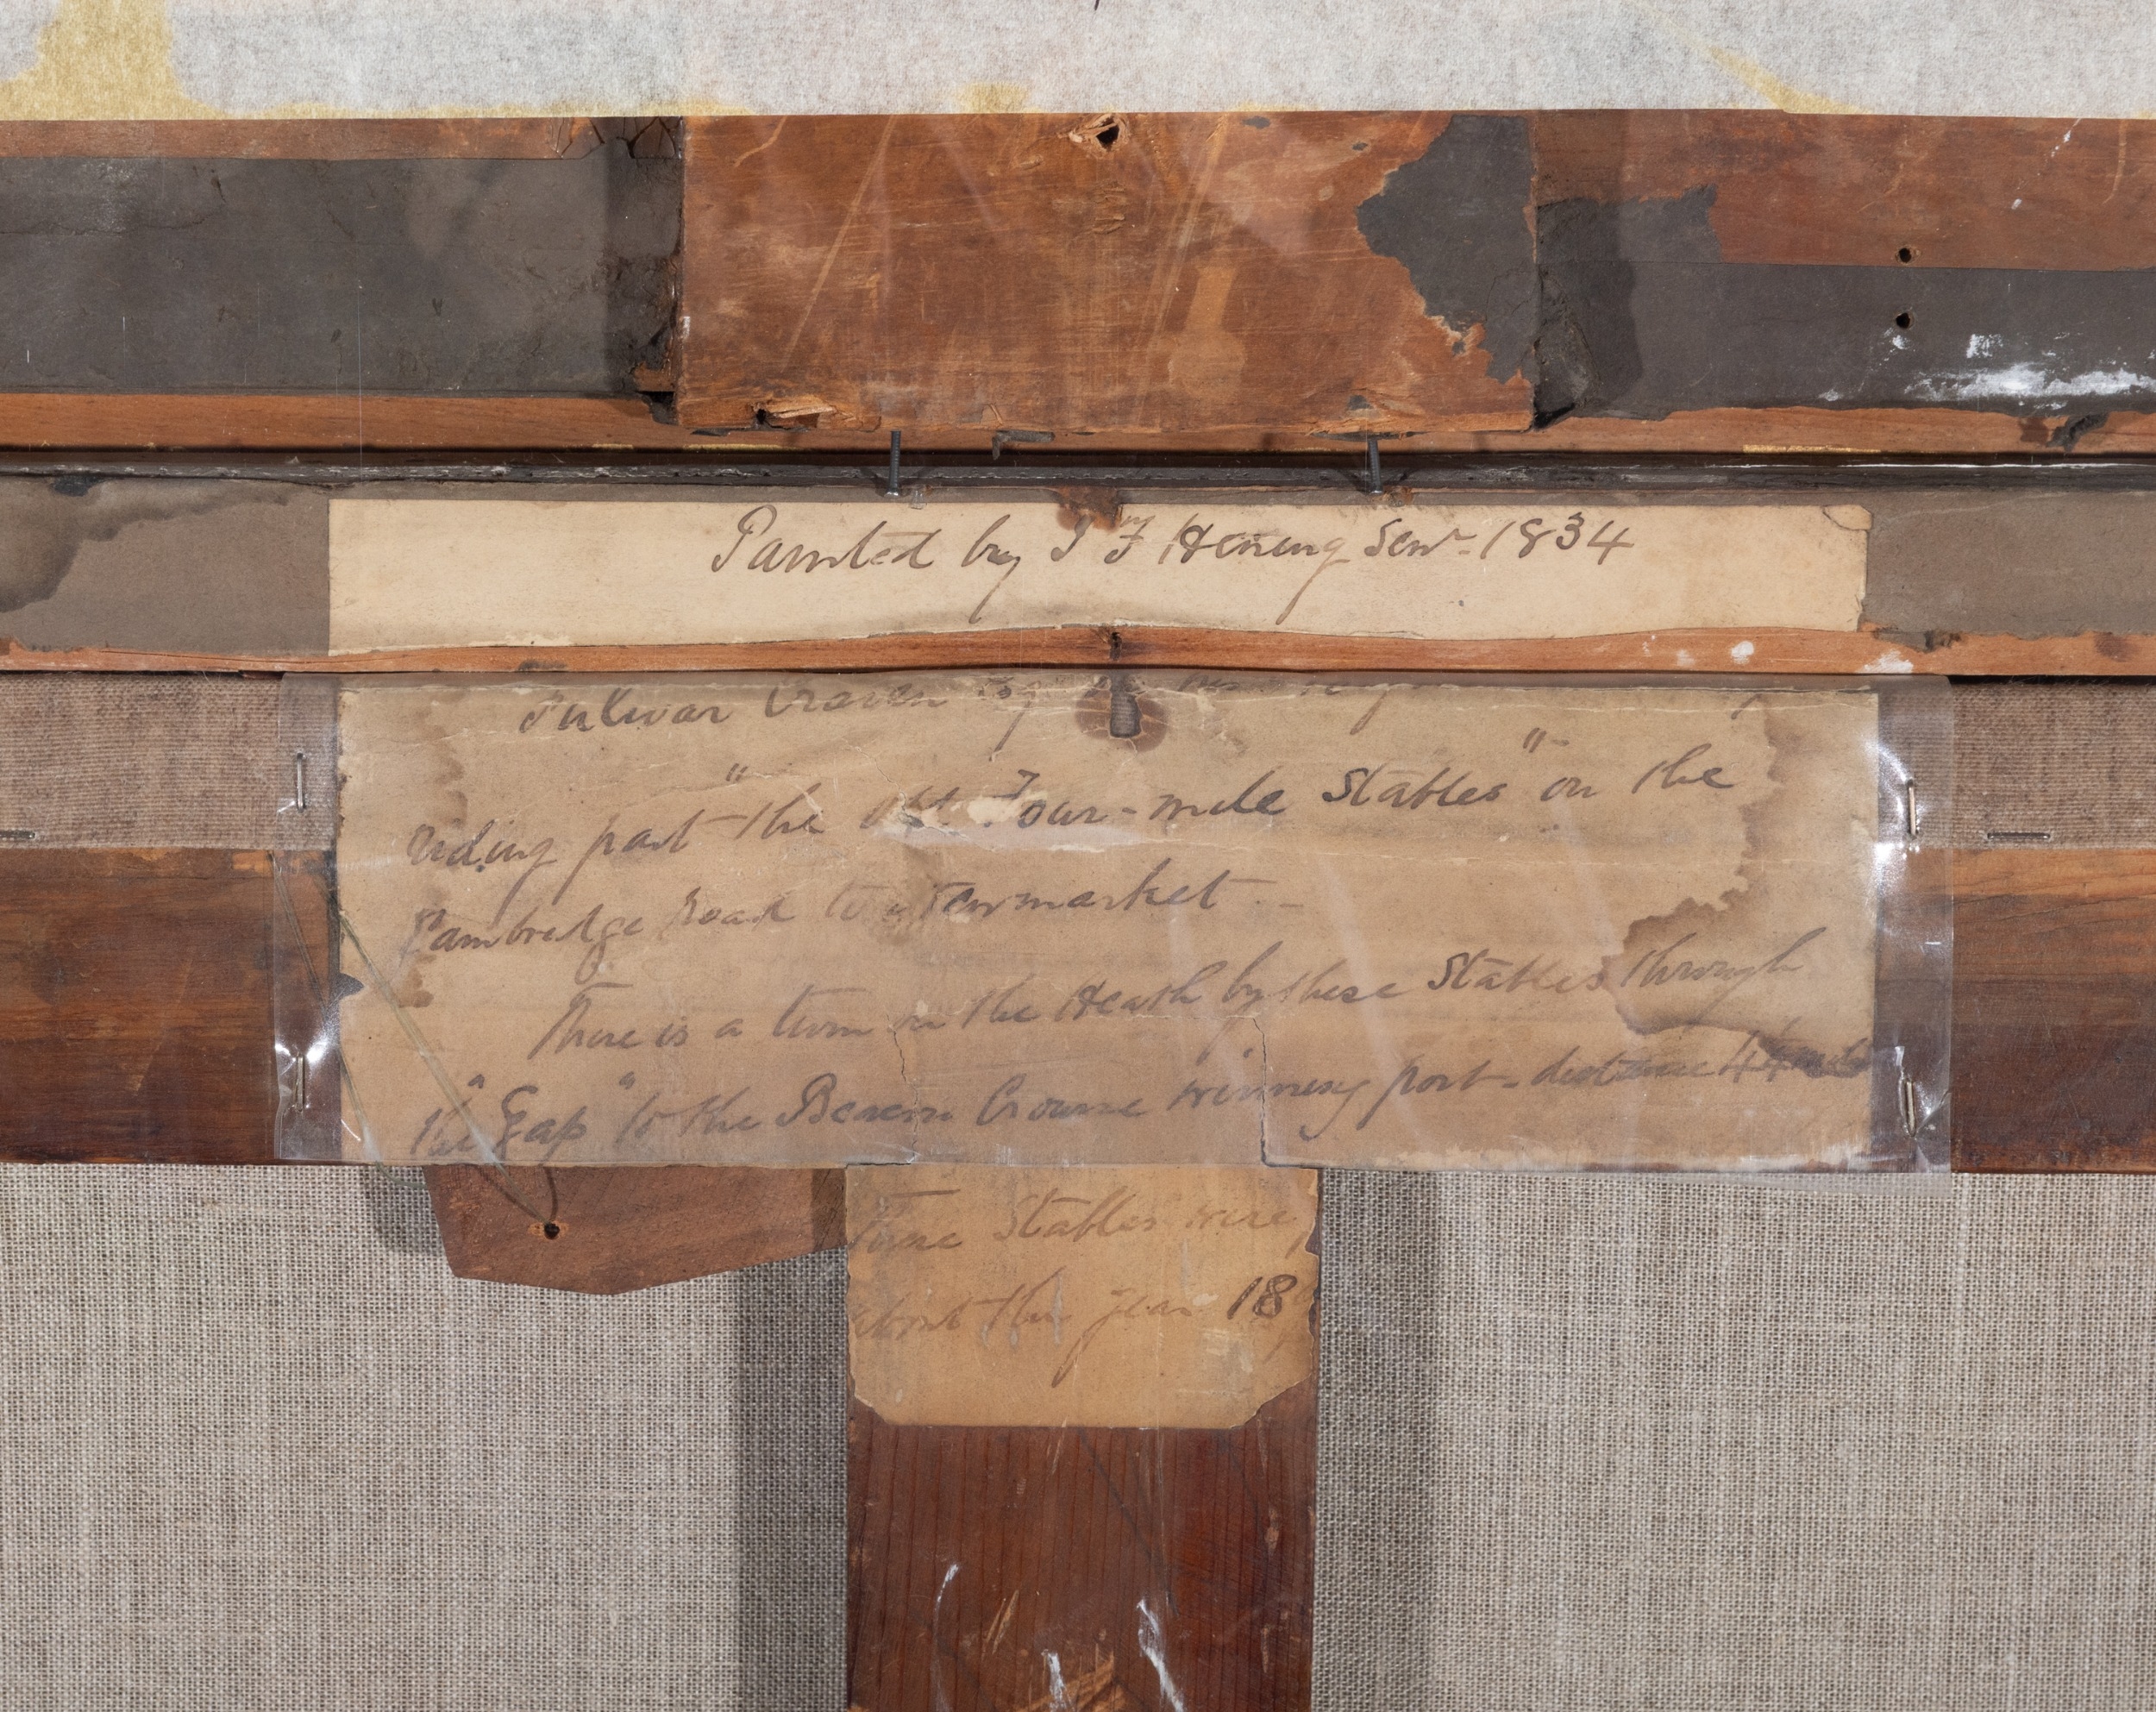 Painted by J F Hering Senr. 1834
Fulwar Craven Esqr
riding past "the Old Four-mile Stables" on the
Cambridge Road to Newmarket -
There is a turn on the Heath by these Stables through
the "Gap" to the Beacon Course winning post - distance 4¼ mile
These Stables were
about the year 18